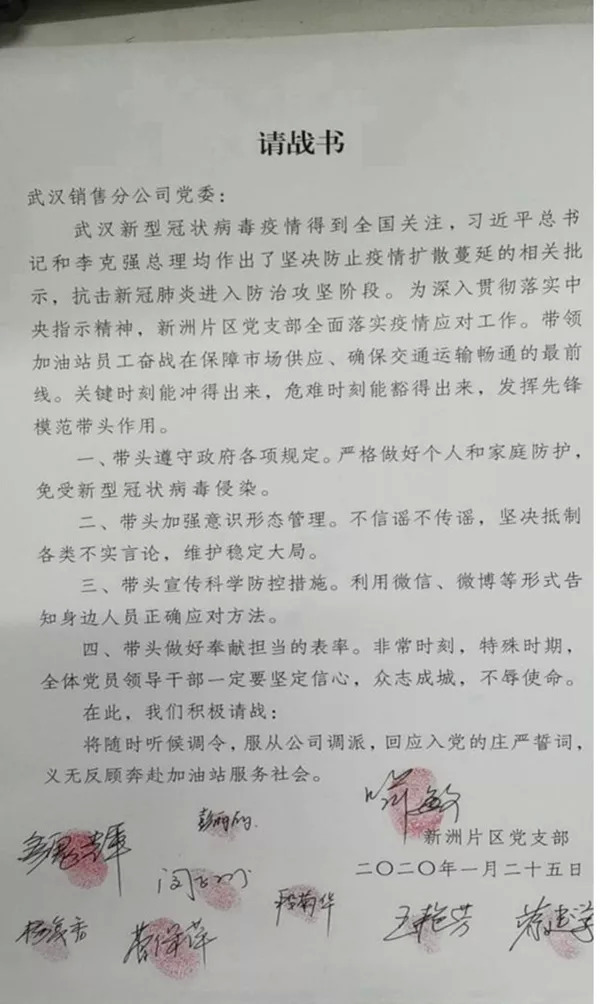 请战书
武汉销售分公司党委：
武汉新型冠状病毒疫情得到全国关注，习近平总书
记和李克强总理均作出了坚决防止疫情扩散蔓延的相关批
示，抗击新冠肺炎进入防治攻坚阶段。为深入贯彻落实中
央指示精神，新洲片区党支部全面落实疫情应对工作。带领
加油站员工奋战在保障市场供应、确保交通运输畅通的最前
线。关键时刻能冲得出来，危难时刻能豁得出来，发挥先锋
模范带头作用。
一、带头遵守政府各项规定。严格做好个人和家庭防护，
免受新型冠状病毒侵染。
二、带头加强意识形态管理。不信谣不传谣，坚决抵制
各类不实言论，维护稳定大局。
三、带头宣传科学防控措施。利用微信、微博等形式告
知身边人员正确应对方法。
四、带头做好奉献担当的表率。非常时刻，特殊时期，
全体党员领导干部一定要坚定信心，众志成城，不辱使命。
在此，我们积极请战：
将随时听候调令，服从公司调派，回应入党的庄严誓词，
义无反顾奔赴加油站服务社会。
新洲片区党支部
二〇二〇年一月二十五日
王艳芳